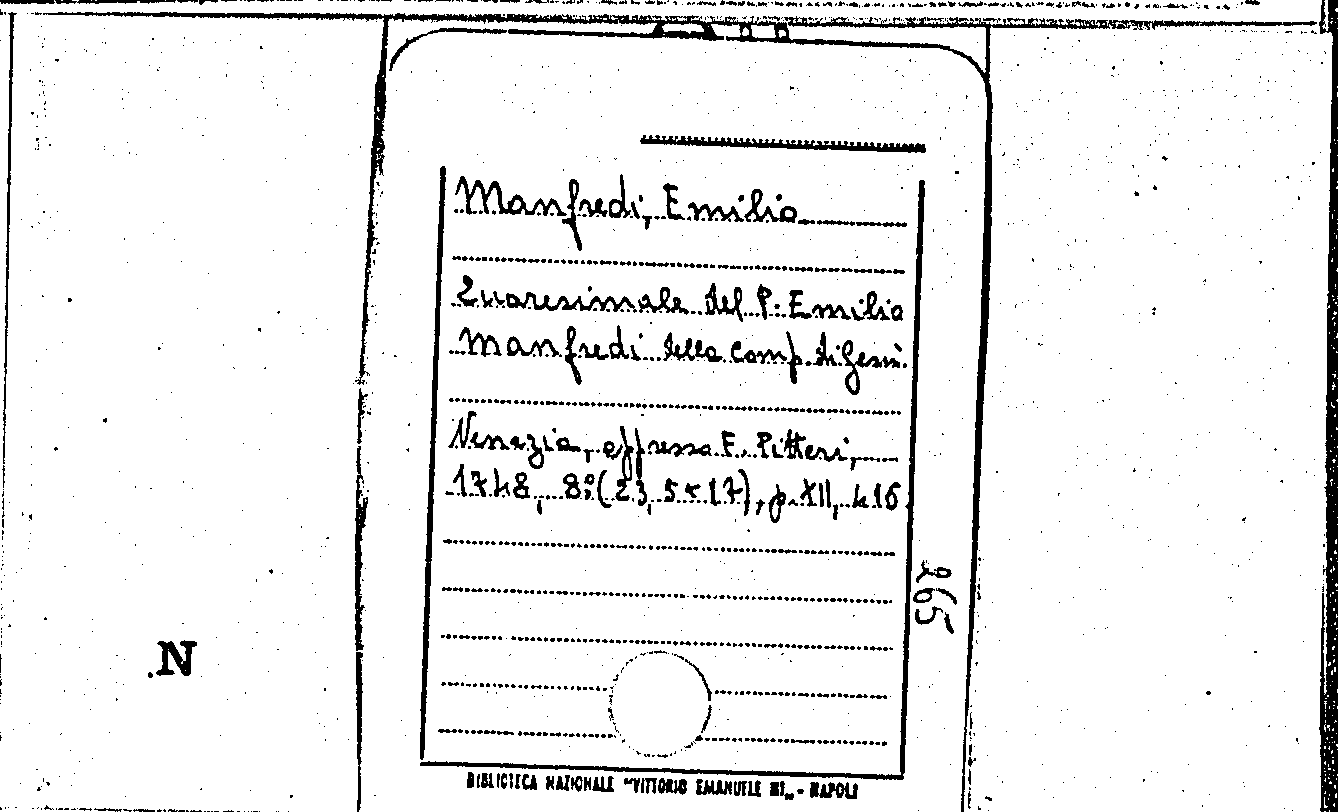 Manfredi, Emilio
Quaresimale del P. Emilio
Manfredi della Comp. di Gesù.
Venezia, appresso F. Pitteri,
1748, 8°(23,5x17), p. XII, 416.
265
N
BIBLIOTECA NAZIONALE "VITTORIO EMANUELE III„ - NAPOLI